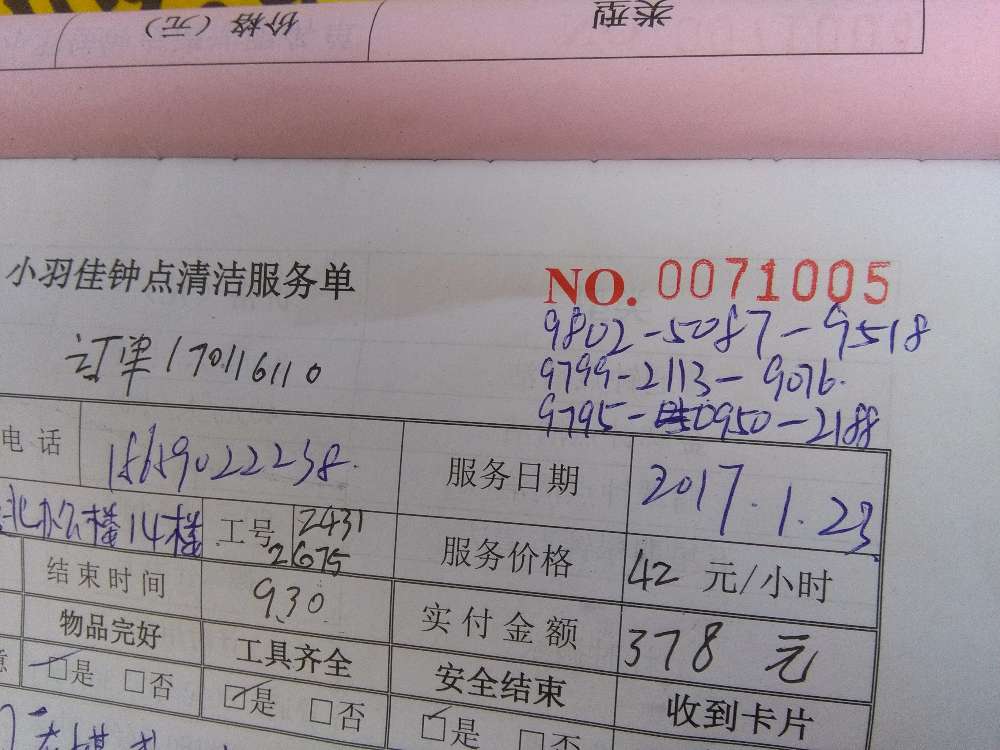 价格（元） 类型
小羽佳钟点清洁服务单
NO. 0071005
9802-5087-9518
订单170116110
9799-2113-9076.
9795-0950-2188
电话 18659022238. 服务日期 2017.1.23
北办公楼14楼 工号 2431 2675 服务价格 42 元/小时
结束时间 930 实付金额 378 元
物品完好 工具齐全 安全结束 收到卡片
☑是 □否 ☑是 □否 ☑是 □否